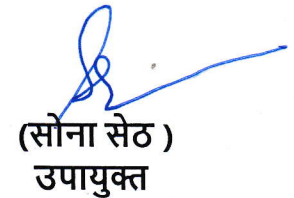 (सोना सेठ )
उपायुक्त